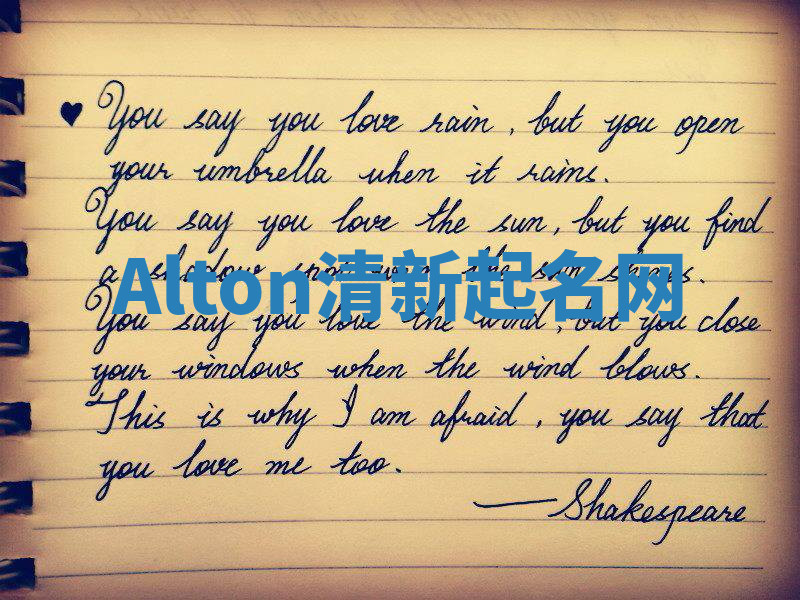 ♥ You say you love rain, but you open
your umbrella when it rains.
You say you love the sun, but you find
a shadow spot when the sun shines.
Alton清新起名网
You say you love the wind, but you close
your windows when the wind blows.
This is why I am afraid, you say that
you love me too.
—Shakespeare